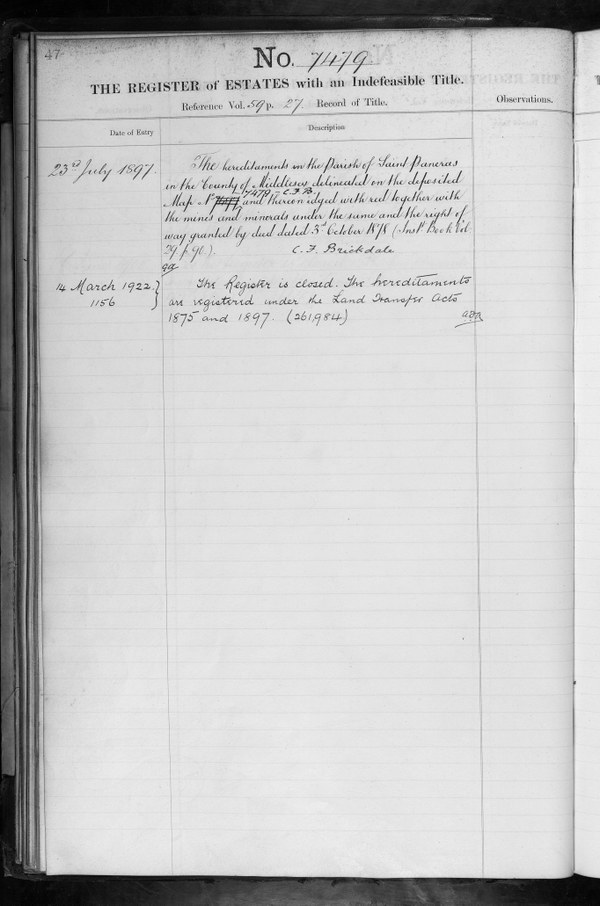 47
No. 7479.
THE REGISTER of ESTATES with an Indefeasible Title.
Reference Vol. 59 p. 27 Record of Title.
Observations.
Date of Entry
Description
23rd July 1897.
The hereditaments in the Parish of Saint Pancras
in the County of Middlesex delineated on the deposited
7479 - C.F.B.
Map No and thereon edged with red together with
the mines and minerals under the same and the right of
way granted by deed dated 3rd October 1878 (Inst. Book Vol
39 p. 90.).
C. F. Brickdale
14 March 1922.
1156
The Register is closed. The hereditaments
are registered under the Land Transfer Acts
1875 and 1897. (261,984)